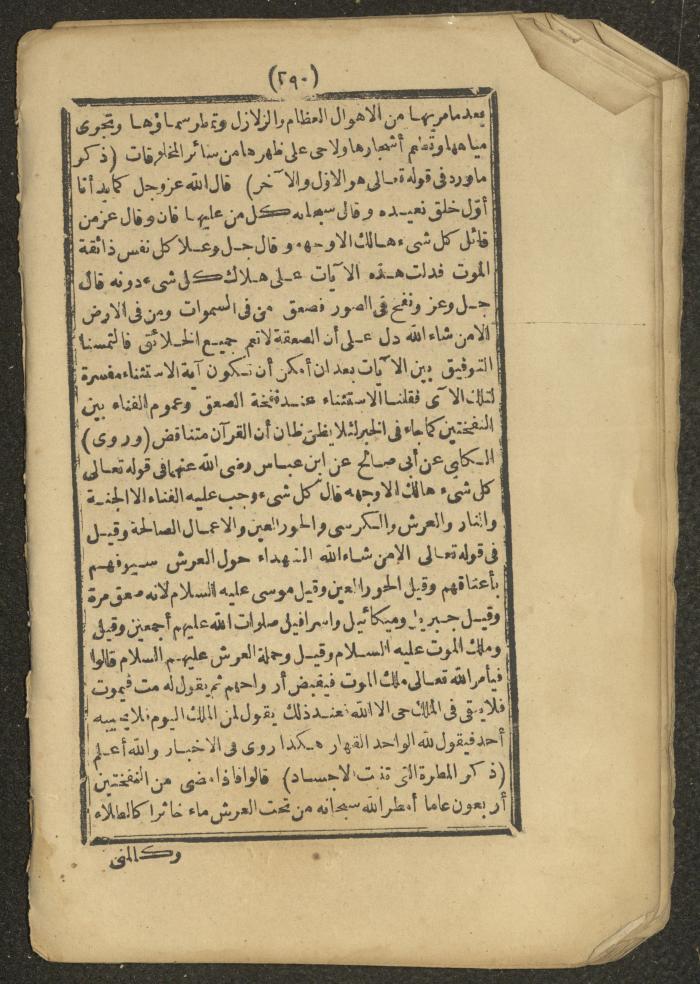 (٢٩٠)
بعد ما مر بها من الاهوال العظام والزلازل وتمطر سماؤها وتجرى
مياهها وتطعم أشجارها ولا حى على ظهرها من سائر المخلوقات (ذكر
ماورد فى قوله تعالى هو الاول والآخر) قال الله عز وجل كما بدأنا
أول خلق نعيده وقال سبحانه كل من عليها فان وقال عز من
قائل كل شىء هالك الا وجهه وقال جل وعلا كل نفس ذائقة
الموت فدلت هذه الآيات على هلاك كل شىء دونه قال
جل وعز ونفخ فى الصور فصعق من فى السموات ومن فى الارض
الا من شاء الله دل على أن الصعقة لا تعم جميع الخلائق فالتمسنا
التوفيق بين الآيات بعد ان أمكن أن تكون آية الاستثناء مفسرة
لتلك الآى فقلنا الاستثناء عند نفخة الصعق وعموم الفناء بين
النفختين كما جاء فى الخبر لئلا يظن ظان أن القرآن متناقض (وروى)
الكلبى عن أبى صالح عن ابن عباس رضى الله عنهما فى قوله تعالى
كل شىء هالك الا وجهه قال كل شىء وجب عليه الفناء الا الجنة
والنار والعرش والكرسى والحور العين والاعمال الصالحة وقيل
فى قوله تعالى الا من شاء الله الشهداء حول العرش سيوفهم
بأعناقهم وقيل الحور العين وقيل موسى عليه السلام لانه صعق مرة
وقيل جبريل وميكائيل واسرافيل صلوات الله عليهم أجمعين وقيل
وملك الموت عليه السلام وقيل وحملة العرش عليهم السلام قالوا
فيأمر الله تعالى ملك الموت فيقبض أرواحهم ثم يقول له مت فيموت
فلا يبقى فى الملك حى الا الله فعند ذلك يقول لمن الملك اليوم فلا يجيبه
أحد فيقول لله الواحد القهار هكذا روى فى الاخبار والله أعلم
(ذكر المطرة التى تنبت الاجساد) قالوا فاذا مضى من النفختين
أربعون عاما أمطر الله سبحانه من تحت العرش ماء خاثرا كالطلاء
وكالمنى